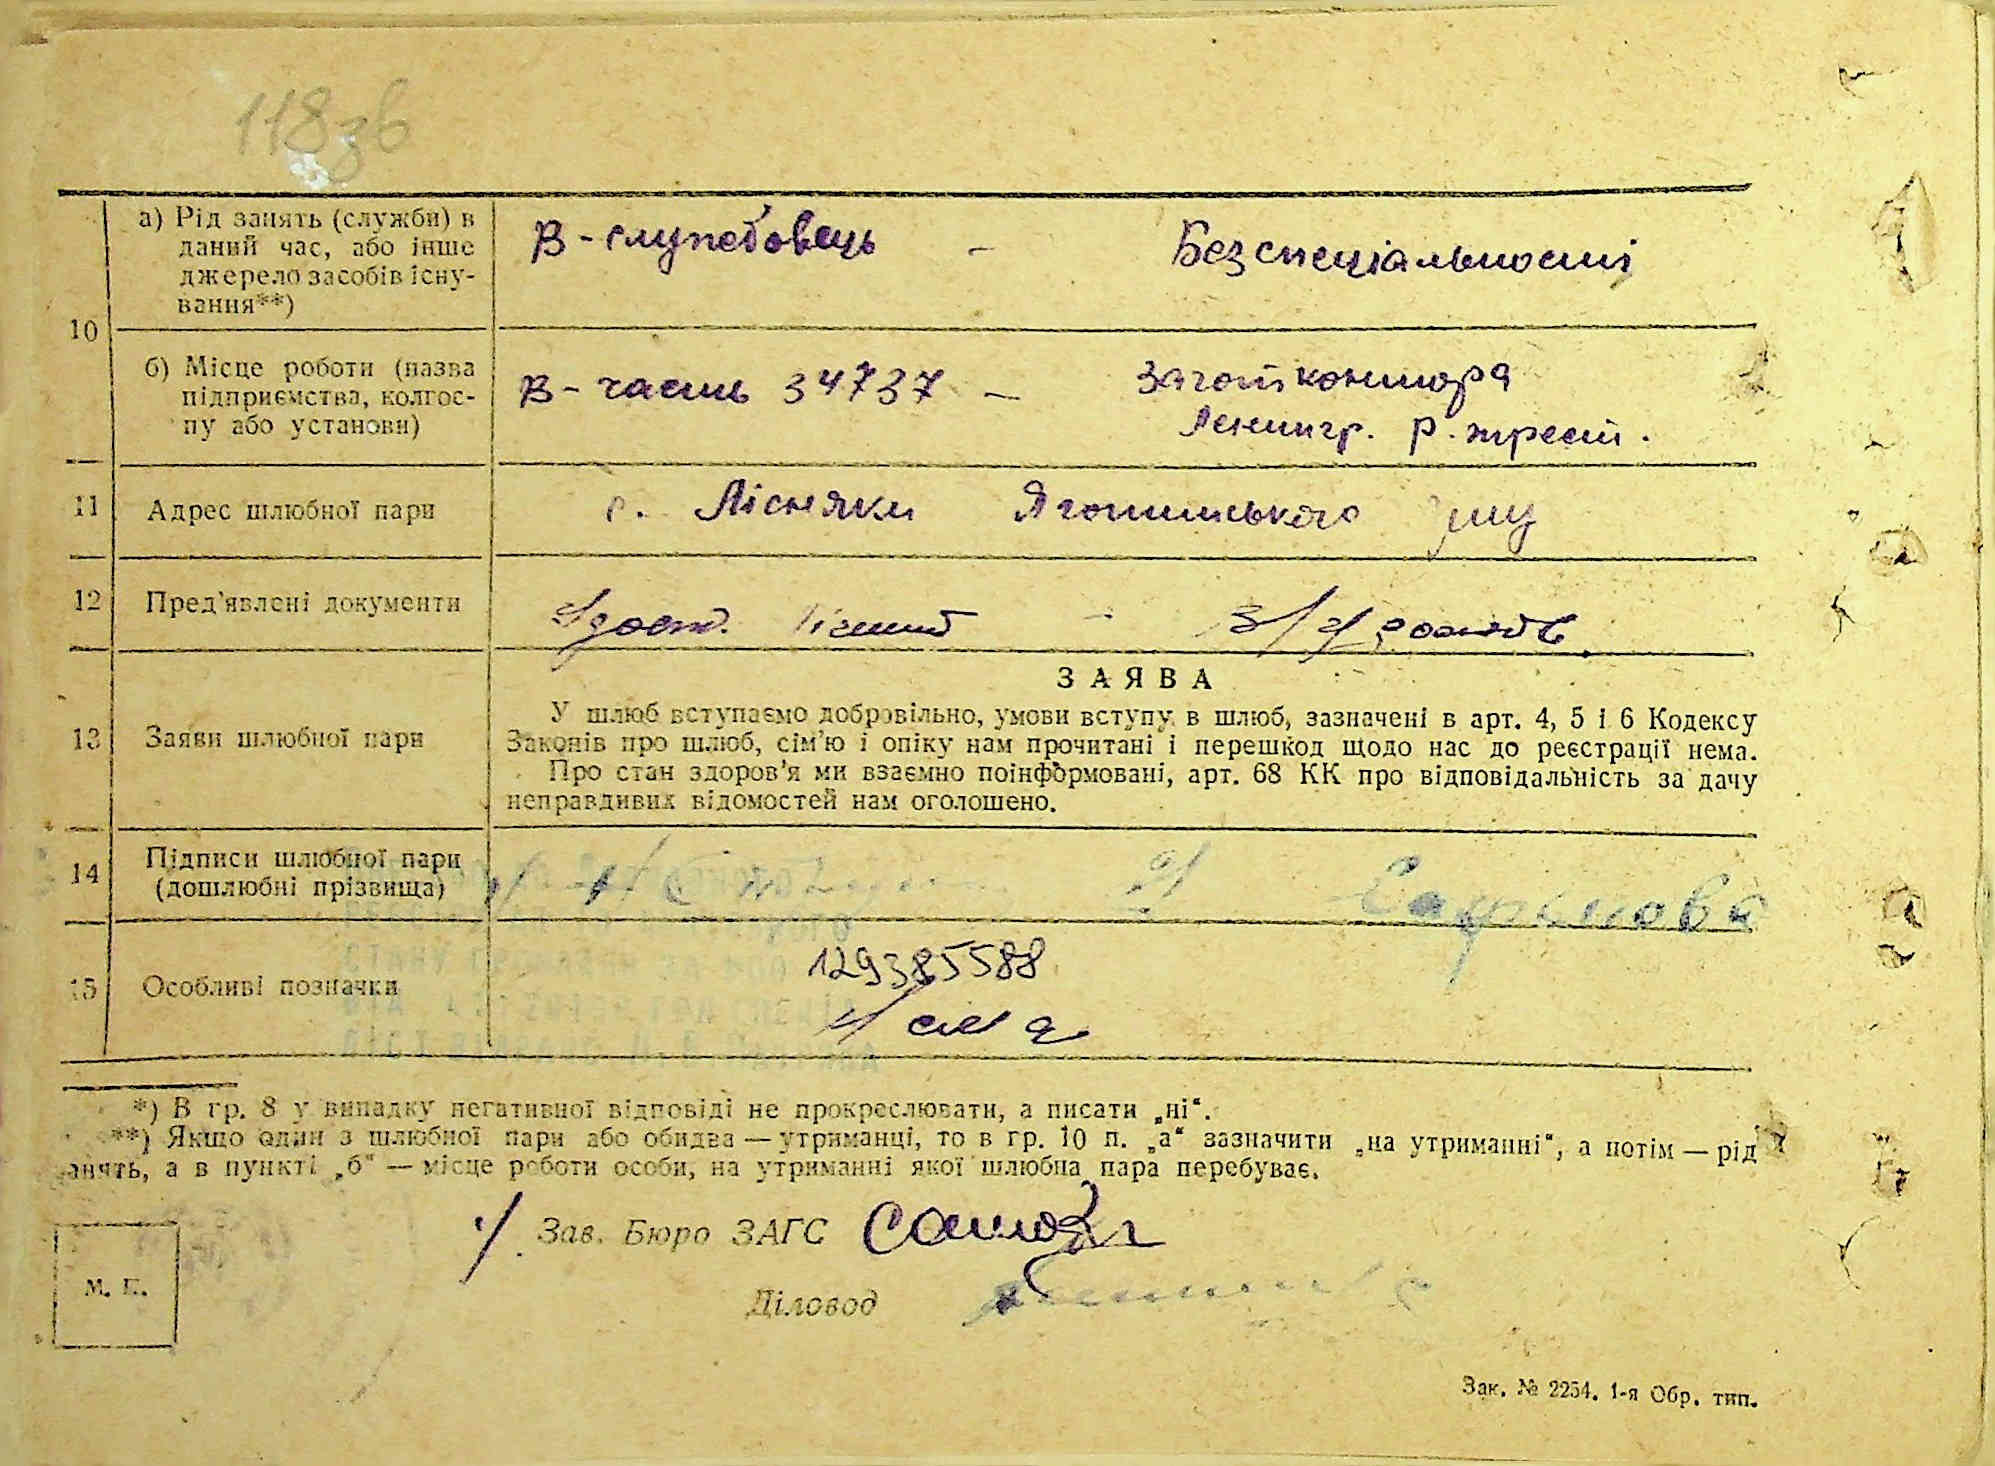 118зв
а) Рід занять (служби) в
даний час, або інше
джерело засобів існу-
вання**)
В - службовець - Без спеціальності
10
б) Місце роботи (назва
підприємства, колгос-
пу або установи)
В - часть 34737 - Заготконтора
Ленингр. р. трест.
11 Адрес шлюбної пари
с. Лісняки Яготинського
12 Пред'явлені документи
Удост.
13 Заяви шлюбної пари
ЗАЯВА
У шлюб вступаємо добровільно, умови вступу в шлюб, зазначені в арт. 4, 5 і 6 Кодексу
Законів про шлюб, сім'ю і опіку нам прочитані і перешкод щодо нас до реєстрації нема.
Про стан здоров'я ми взаємно поінформовані, арт. 68 КК про відповідальність за дачу
неправдивих відомостей нам оголошено.
14 Підписи шлюбної пари
(дошлюбні прізвища)
15 Особливі позначки
129385588
*) В гр. 8 у випадку негативної відповіді не прокреслювати, а писати „ні“.
**) Якщо один з шлюбної пари або обидва — утриманці, то в гр. 10 п. „а“ зазначити „на утриманні“, а потім — рід
анять, а в пункті „б“ — місце роботи особи, на утриманні якої шлюбна пара перебуває.
Зав. Бюро ЗАГС
Діловод
М. П.
Зак. № 2254. 1-я Обр. тип.